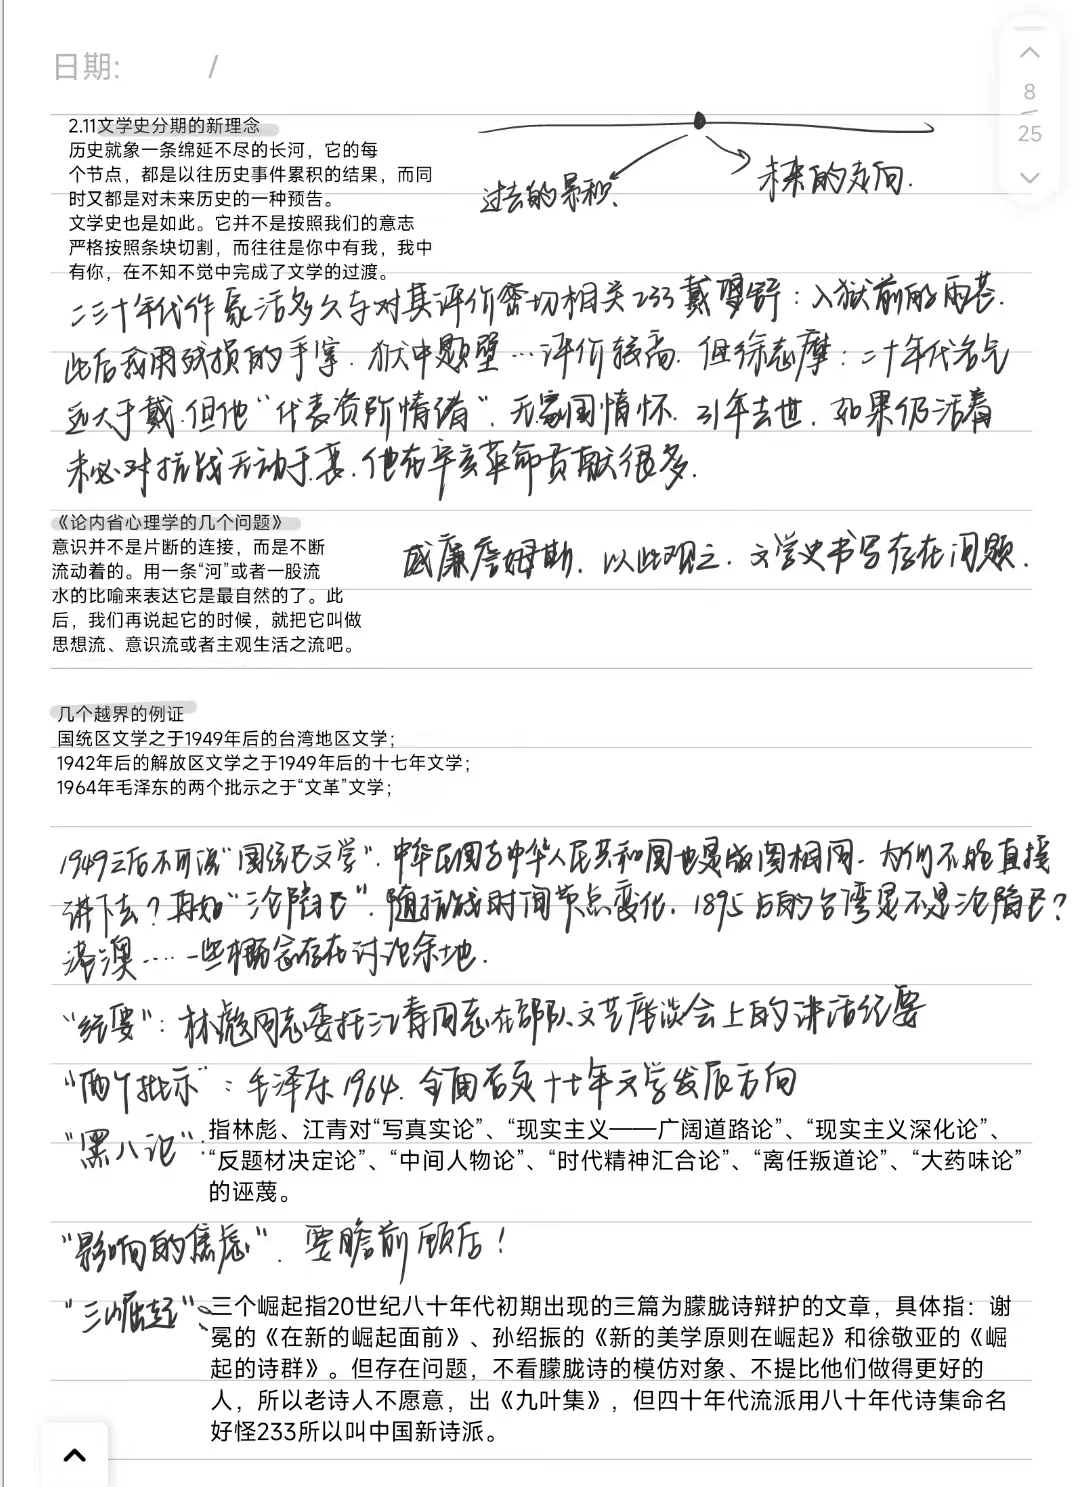 日期: /
8
25
2.11文学史分期的新理念
历史就象一条绵延不尽的长河，它的每
个节点，都是以往历史事件累积的结果，而同
时又都是对未来历史的一种预告。
文学史也是如此。它并不是按照我们的意志
严格按照条块切割，而往往是你中有我，我中
有你，在不知不觉中完成了文学的过渡。
过去的累积、
未来的走向.
二三十年代作家活多久与对其评价密切相关233戴望舒：入狱前的雨巷.
此后我用残损的手掌.狱中题壁…评价较高.但徐志摩：二十年代名气
远大于戴.但他“代表资阶情绪”.无家国情怀.31年去世.如果仍活着
未必对抗战无动于衷.他在辛亥革命贡献很多.
《论内省心理学的几个问题》
意识并不是片断的连接，而是不断
流动着的。用一条“河”或者一股流
水的比喻来表达它是最自然的了。此
后，我们再说起它的时候，就把它叫做
思想流、意识流或者主观生活之流吧。
威廉詹姆斯.以此观之.文学史书写存在问题.
几个越界的例证
国统区文学之于1949年后的台湾地区文学；
1942年后的解放区文学之于1949年后的十七年文学；
1964年毛泽东的两个批示之于“文革”文学；
1949之后不可说“国统区文学”.中华民国与中华人民共和国也是版图相同.为何不能直接
讲下去？再如“沦陷区”.随抗战时间节点变化.1895后的台湾是不是沦陷区？
港澳……一些概念存在讨论余地.
“纪要”：林彪同志委托江青同志在部队文艺座谈会上的讲话纪要
“两个批示”：毛泽东1964.全面否定十七年文学发展方向
“黑八论”：指林彪、江青对“写真实论”、“现实主义——广阔道路论”、“现实主义深化论”、
“反题材决定论”、“中间人物论”、“时代精神汇合论”、“离任叛道论”、“大药味论”
的诬蔑。
“影响的焦虑”.要瞻前顾后！
“三崛起”：三个崛起指20世纪八十年代初期出现的三篇为朦胧诗辩护的文章，具体指：谢
冕的《在新的崛起面前》、孙绍振的《新的美学原则在崛起》和徐敬亚的《崛
起的诗群》。但存在问题，不看朦胧诗的模仿对象、不提比他们做得更好的
人，所以老诗人不愿意，出《九叶集》，但四十年代流派用八十年代诗集命名
好怪233所以叫中国新诗派。